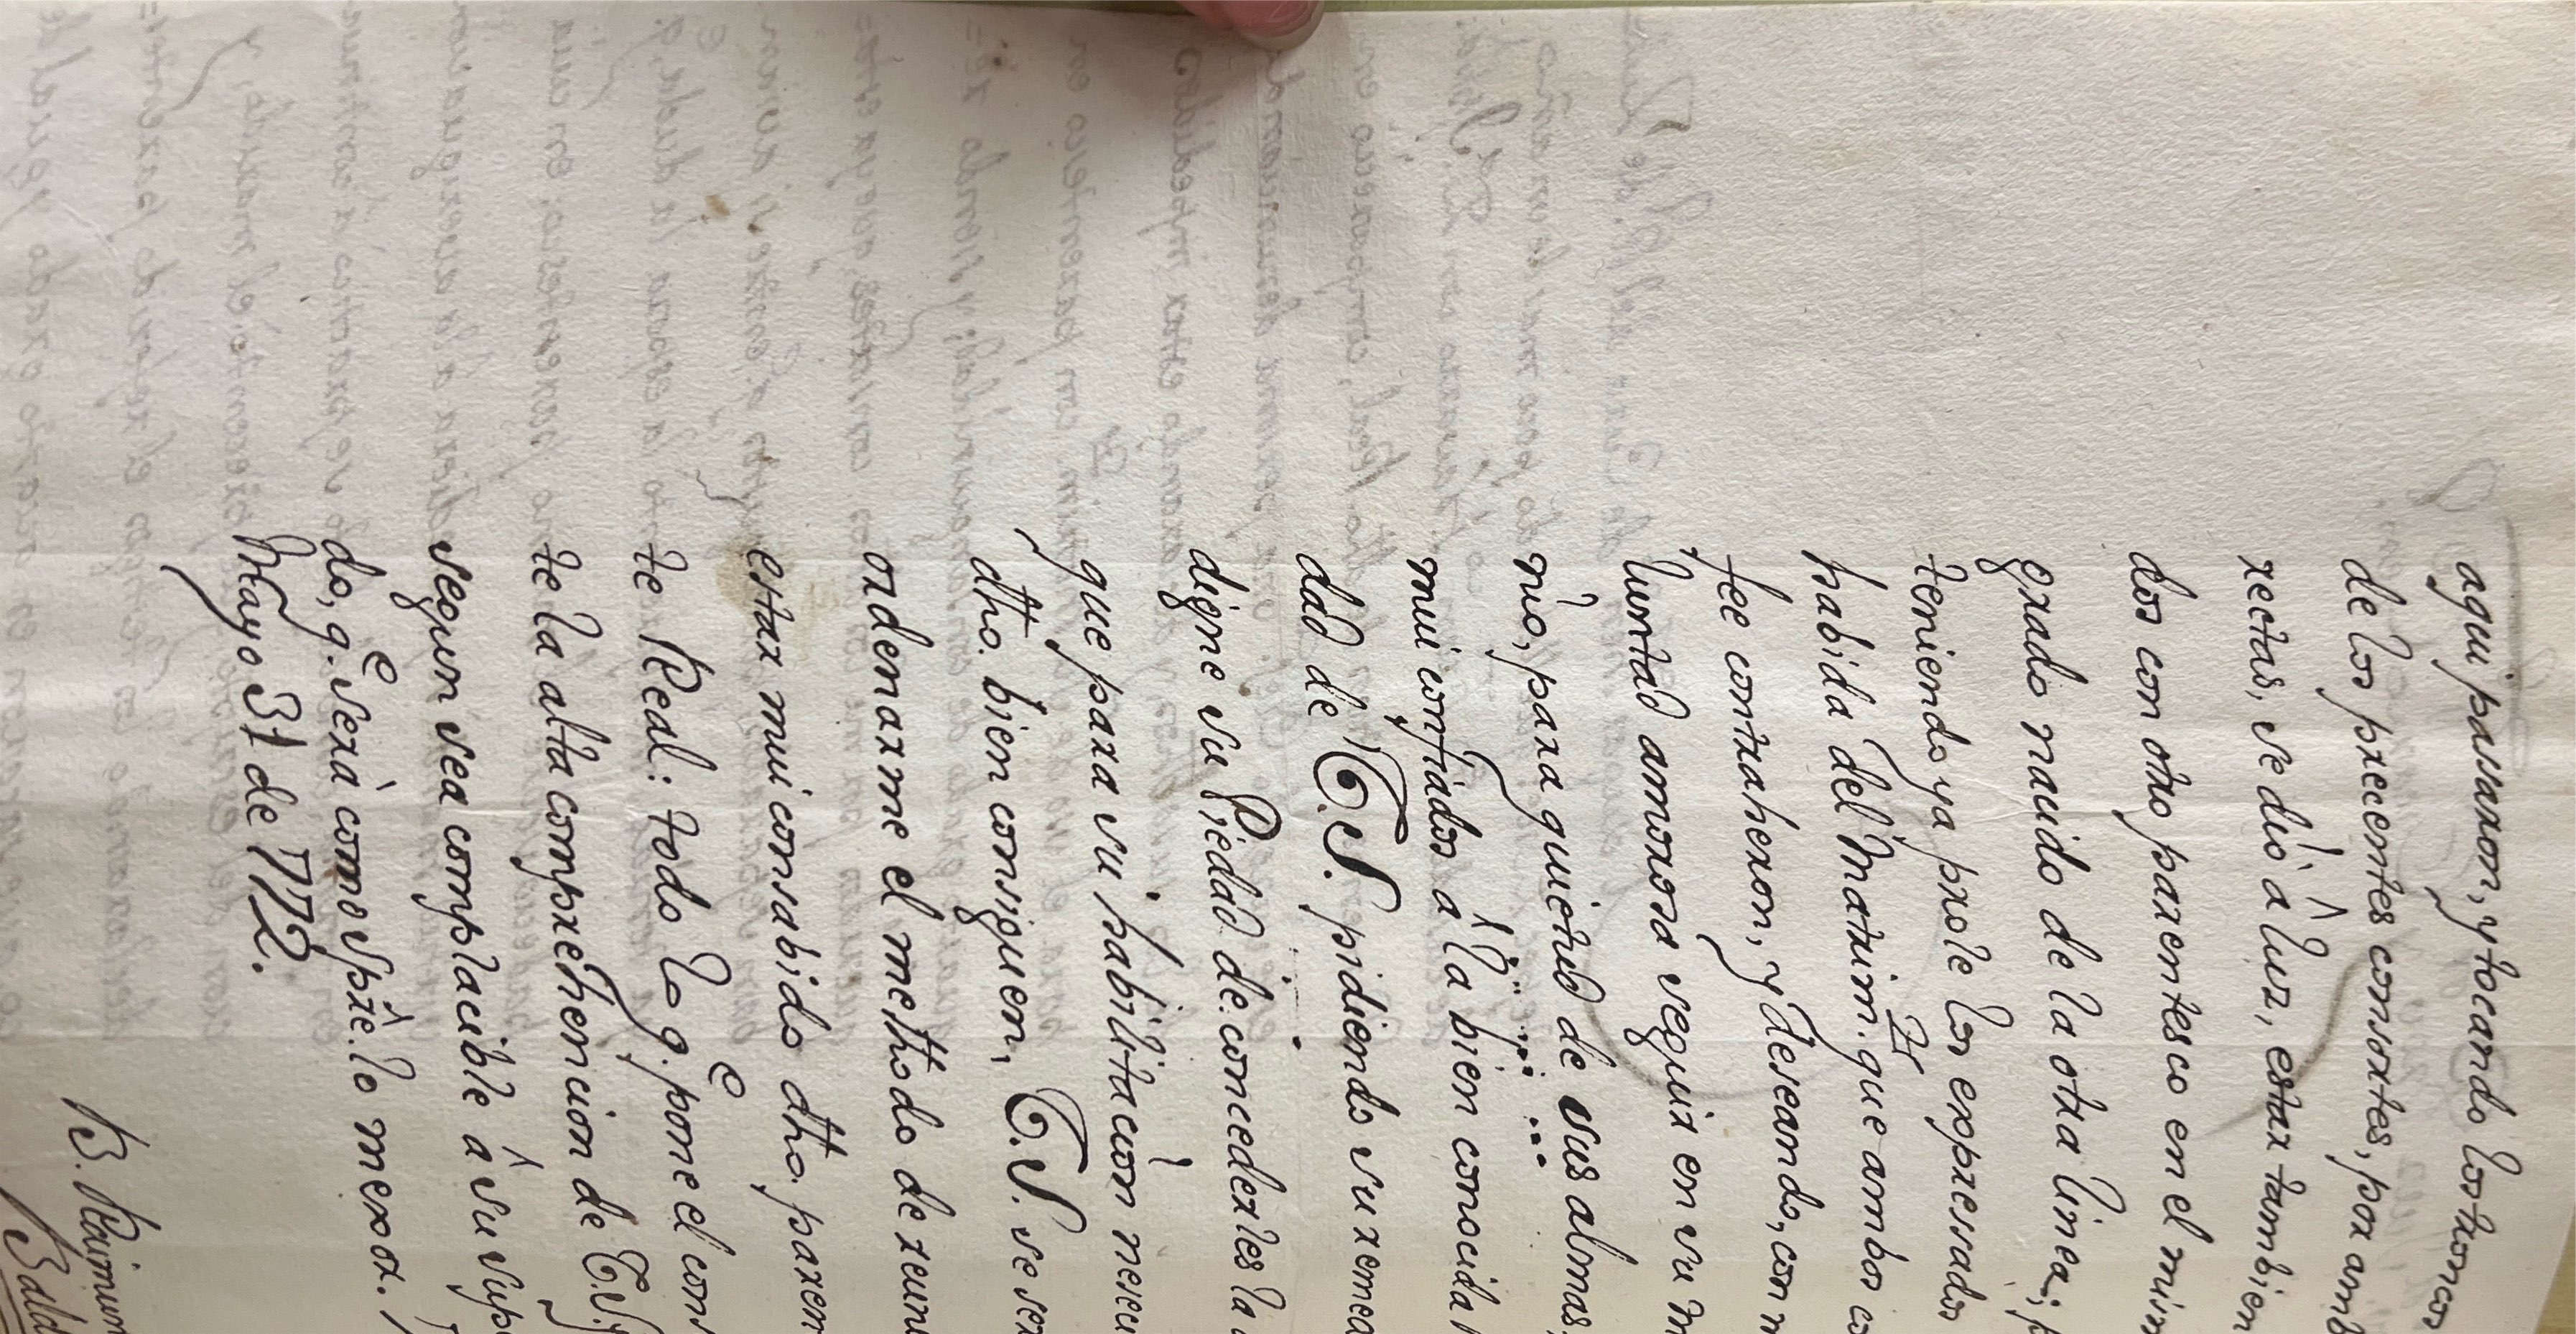 aqui passaron, y tocando los troncos
de los precentes consortes, por amb
rectas, se dió â luz, estar tambien
dos con otro parentesco en el mism
grado nacido de la otra linea; p
teniendo ya prole los expressados
habida del Matrim.º que ambos co
fee contraheron, y deseando, con m
luntad amorosa seguir en su m
nio, para quietud de sus almas,
mui confiados â la bien conocida
dad de V.S. pidiendo su remed
digne su Piedad de concederles la
que para su habilitaciòn neseci
dho. bien consiguen, V.S. se ser
ordenarme el methodo de reuni
estar mui consabido dho. paren
te Real: todo lo q.e pone el cons
te la alta comprehencion de V.S. y
segun sea complacible â su supe
do, q.e serà como spre. lo mexor.
Mayo 31 de 772.
B. Raimun
Bald